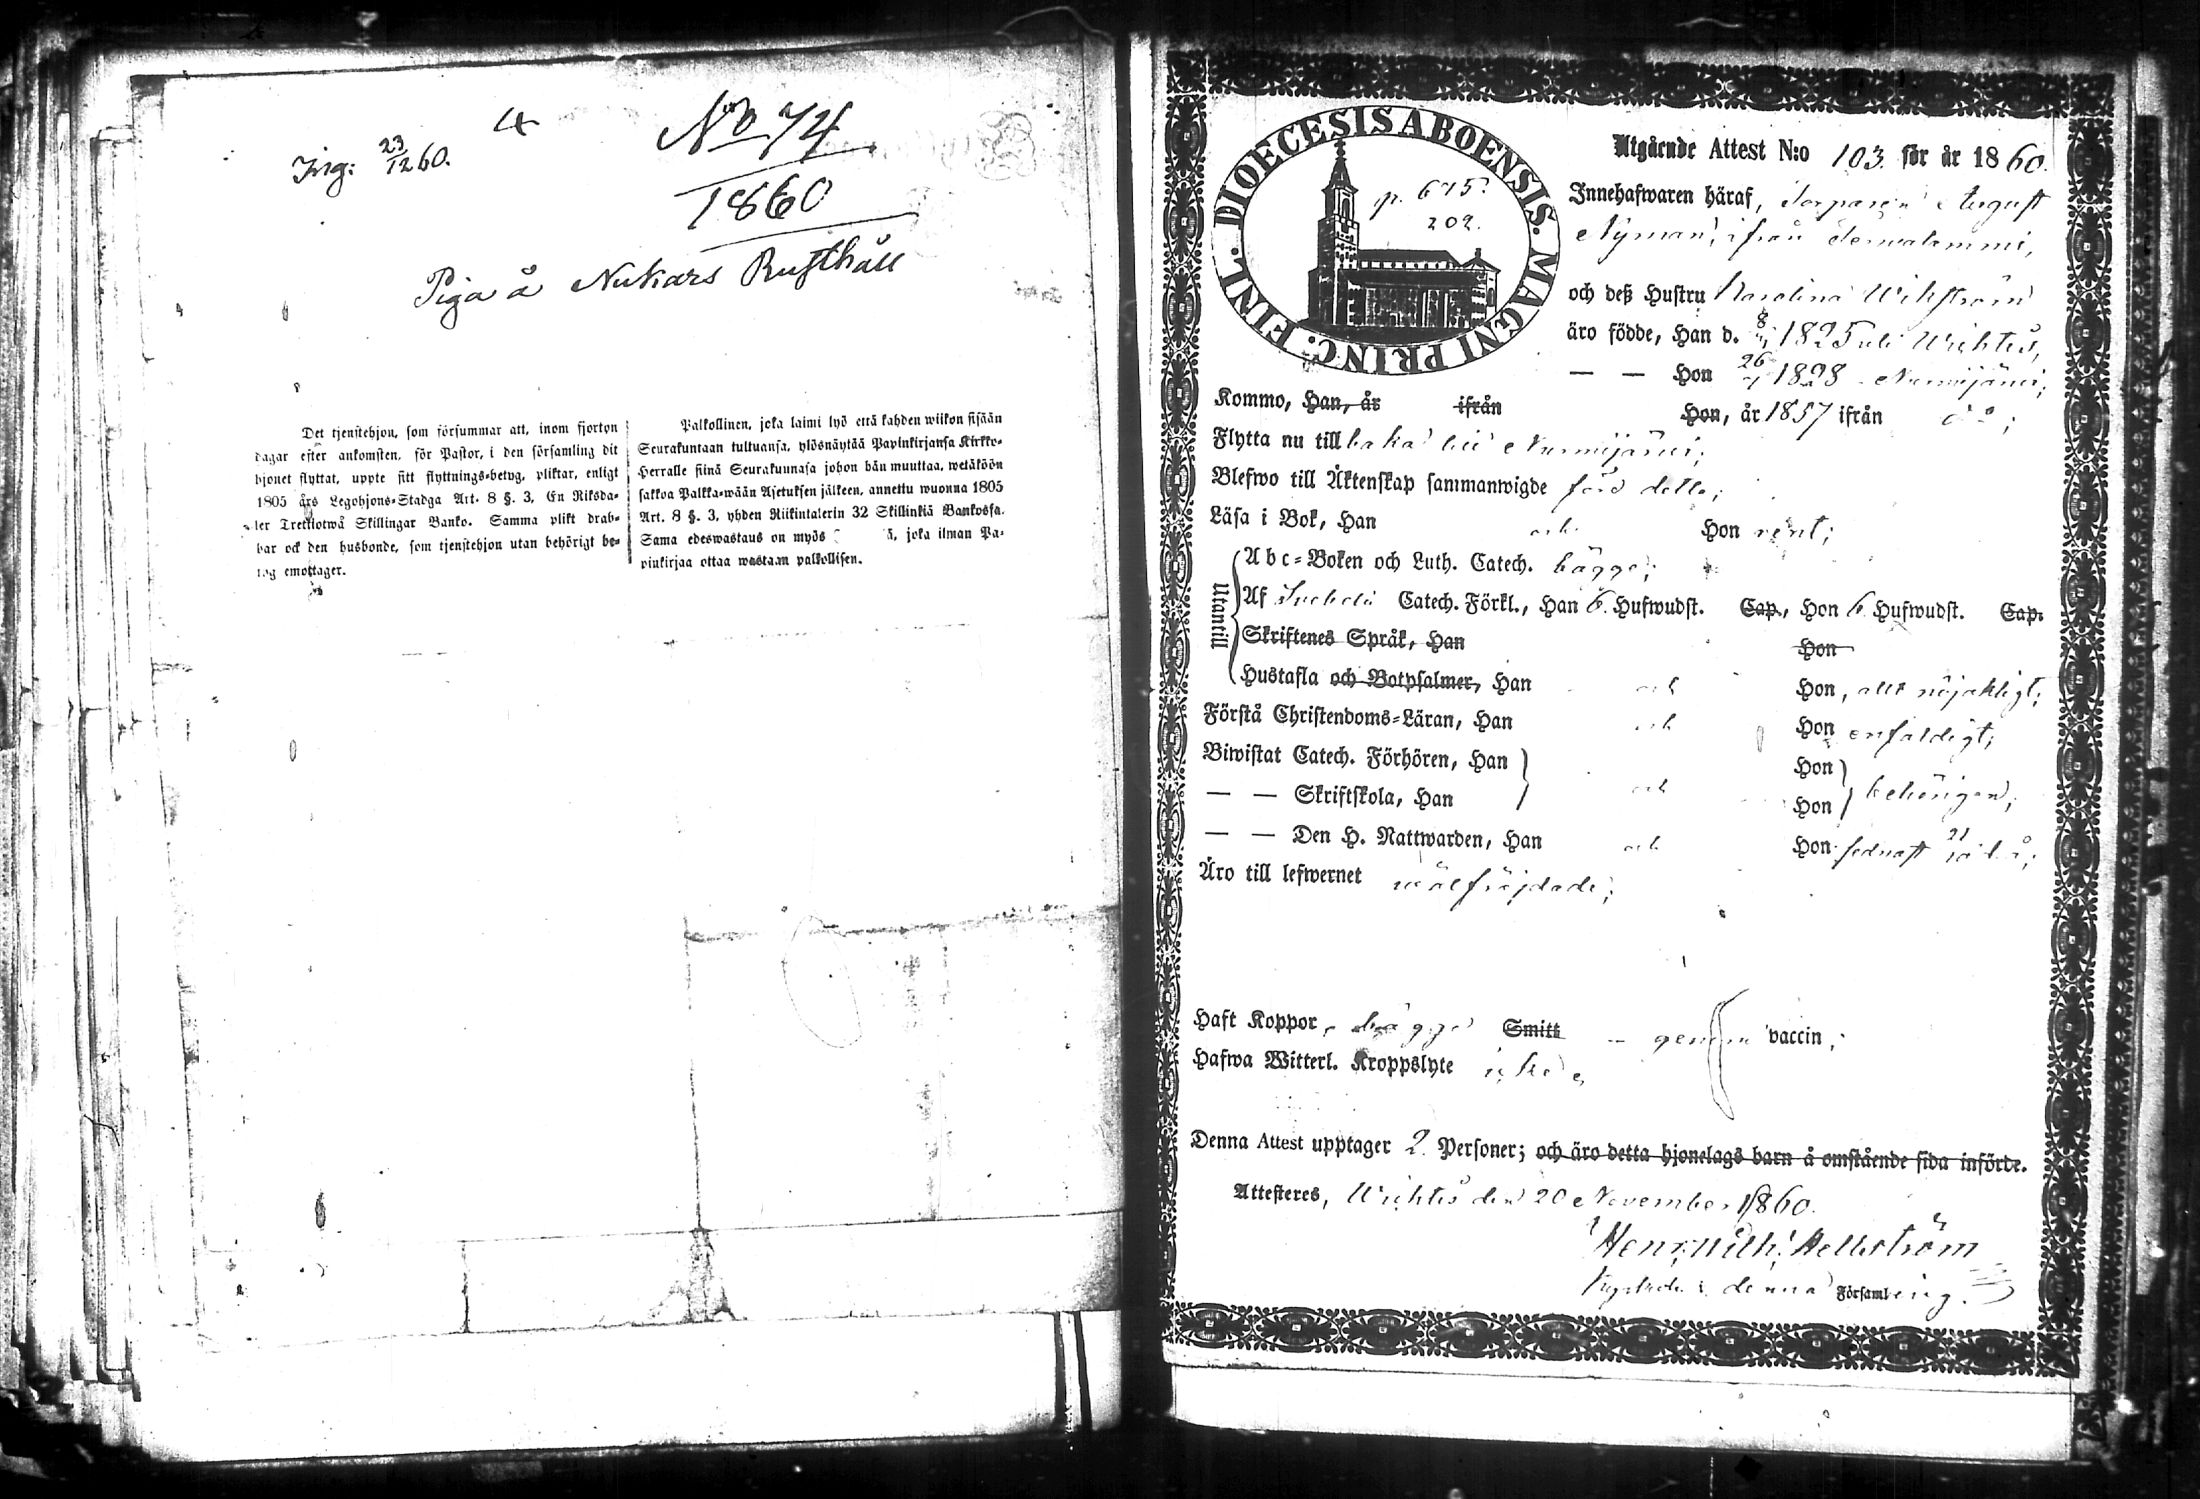 4
Ing: 23/12 60.
No 74
1860
Piga å Nukars Rusthåll
Det tjenstehjon, som försummar att, inom fjorton
dagar efter ankomsten, för Pastor, i den församling dit
hjonet flyttat, uppte sitt flyttnings-betyg, pliktar, enligt
1805 års Legohjons-Stadga Art. 8 §. 3, En Riksda-
ler Trettiotwå Skillingar Banko. Samma plikt drab-
bar ock den husbonde, som tjenstehjon utan behörigt be-
tyg emottager.
Palkollinen, joka laimi lyö että kahden wiikon sisään
Seurakuntaan tultuansa, ylösnäytää Papinkirjansa Kirkko-
Herralle siinä Seurakunnasa johon hän muuttaa, wetäköön
sakkoa Palkka-wään Asetuksen jälkeen, annettu wuonna 1805
Art. 8 §. 3, yhden Riikintalerin 32 Skillinkiä Bankossa.
Sama edeswastaus on myös ä, joka ilman Pa-
pinkirjaa ottaa wastaan palkollisen.
DIOECESIS ABOENSIS. MAGNI PRINC. FINL.
p. 675.
202.
Utgående Attest N:o 103. för år 1860.
Innehafwaren häraf, Torparen August
Nyman, ifrån
och deß Hustru Karolina Wikström
äro födde, Han d. 8 1825 uti Wichtis,
— — Hon 26 1828 Nurmijärvi,
Kommo, Han, år ifrån Hon, år 1857 ifrån d:o;
Flytta nu till baka till Nurmijärvi;
Blefwo till Äktenskap sammanwigde förd detta;
Läsa i Bok, Han och Hon rent;
Utantill
Abc-Boken och Luth. Catech. bägge;
Af Svebelii Catech. Förkl., Han 6. Hufwudst. Cap., Hon 6 Hufwudst. Cap.
Skriftenes Språk, Han Hon
Hustafla och Botpsalmer, Han och Hon, allt nöjaktigt;
Förstå Christendoms-Läran, Han och Hon enfaldigt;
Biwistat Catech. Förhören, Han Hon
— — Skriftskola, Han och Hon behörigen;
— — Den H. Nattwarden, Han och Hon sednast 21
Äro till lefwernet wälfräjdade;
Haft Koppor, bägge Smitt genom vaccin;
Hafwa Witterl. Kroppslyte icke
Denna Attest upptager 2. Personer; och äro detta hjonelags barn å omstående sida införde.
Attesteres, Wichtis den 20 November 1860.
Henr. Wilh. Hellström
Kyrkoh. i denna Församling.